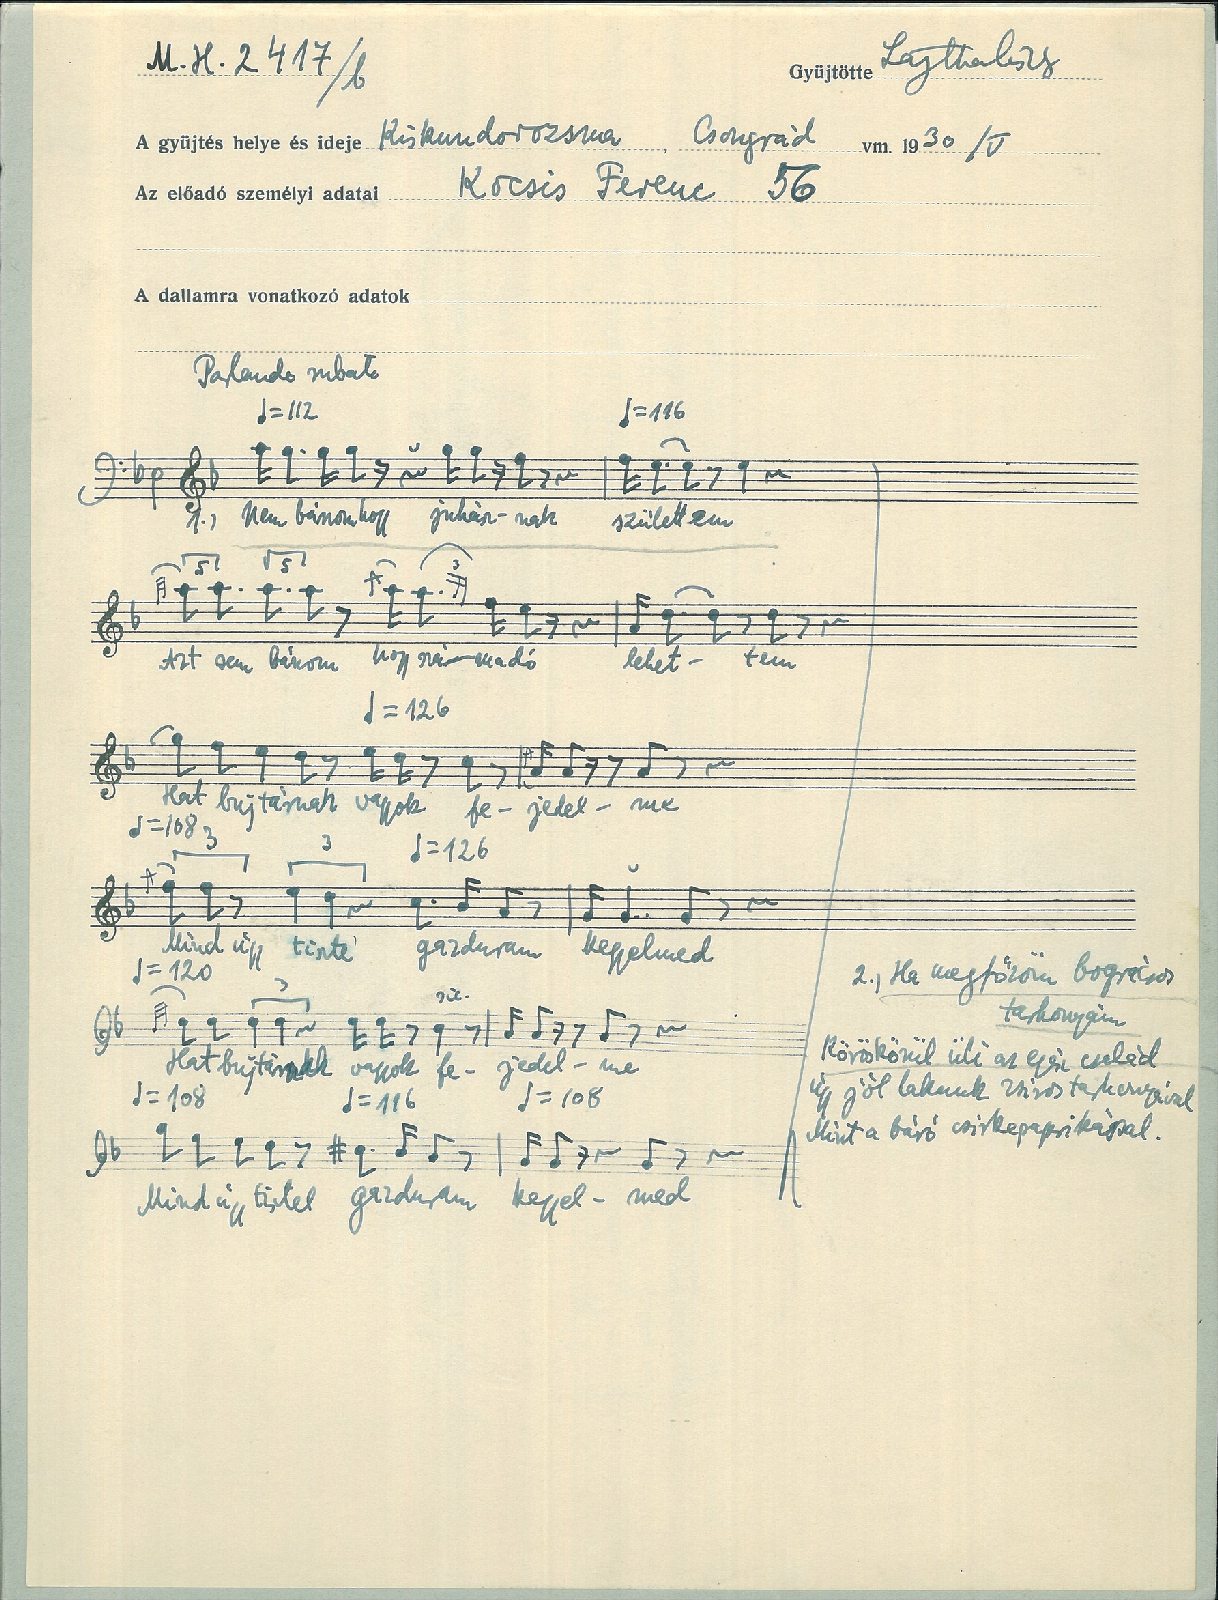 M. H. 2417/b
Gyüjtötte Lajtha László
A gyüjtés helye és ideje Kiskundorozsma, Csongrád vm. 1930/V
Az előadó személyi adatai Kocsis Ferenc 56
A dallamra vonatkozó adatok
Parlando rubato
♩=112 ♩=116
1., Nem bánom hogy juhász-nak született em
5 5 3
Azt sem bánom hogy szá-madó lehet- tem
♩=126
Hat bujtárnak vagyok fe- jedel- me
♩=108 3 3 ♩=126
Mind úgy tisztel gazduram kegyelmed
♩=120 3 sic.
Hat bujtárnak vagyok fe- jedel- me
♩=108 ♩=116 ♩=108
Mind úgy tisztel gazduram kegyel- med
2., Ha megfőzöm bográcsos
tarhonyám
Köröskörül üli az egész család
úgy jól lakunk zsiros tarhonyával
Mint a báró csirkepaprikással.